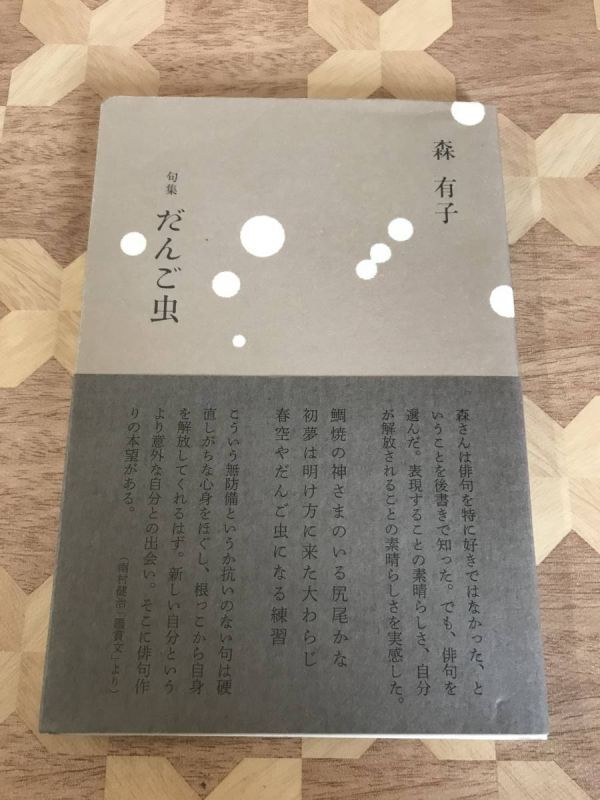 森 有子
句集 だんご虫
森さんは俳句を特に好きではなかった、と
いうことを後書きで知った。でも、俳句を
選んだ。表現することの素晴らしさ、自分
が解放されることの素晴らしさを実感した。
鯛焼の神さまのいる尻尾かな
初夢は明け方に来た大わらじ
春空やだんご虫になる練習
こういう無防備というか抗いのない句は硬
直しがちな心身をほぐし、根っこから自身
を解放してくれるはず。新しい自分という
より意外な自分との出会い。そこに俳句作
りの本望がある。
(南村健治「鑑賞文」より)